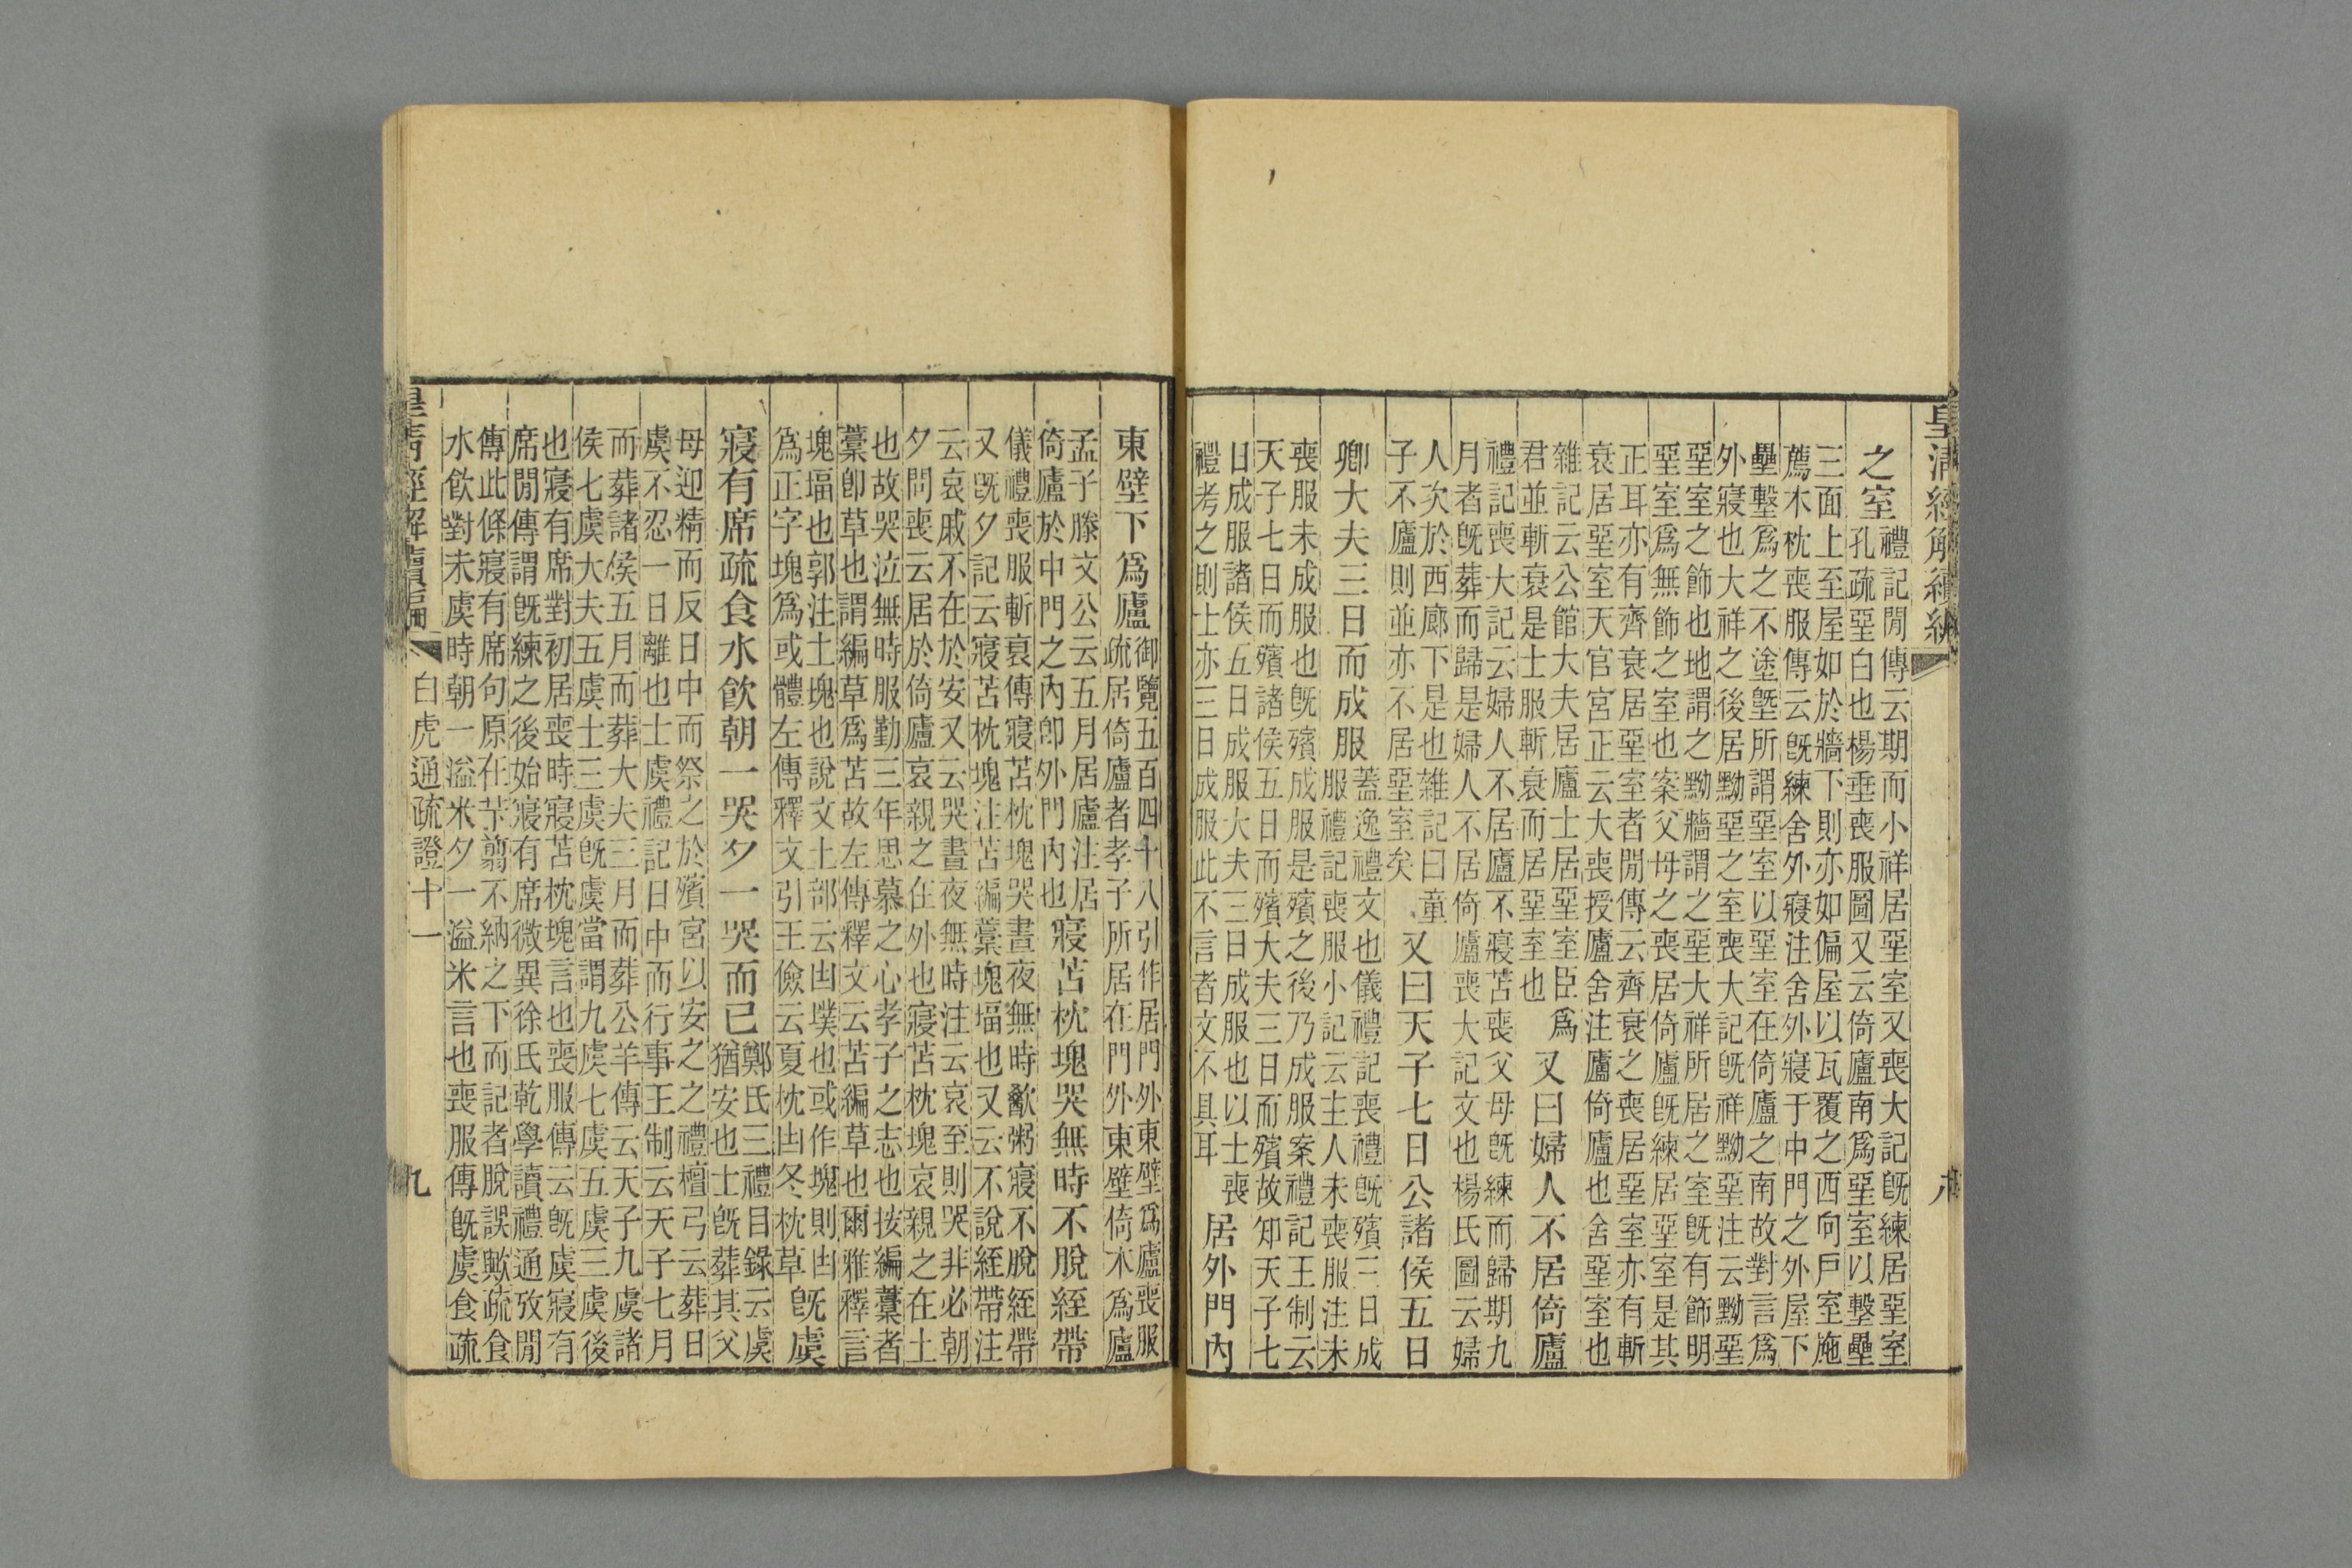 皇清經解續編
八
之室
禮記閒傳云期而小祥居堊室又喪大記既練居堊室
孔疏堊白也楊垂喪服圖又云倚廬南爲堊室以墼壘
三面上至屋如於牆下則亦如偏屋以瓦覆之西向戶室施
薦木枕喪服傳云既練舍外寢注舍外寢于中門之外屋下
壘墼爲之不塗墍所謂堊室以堊室在倚廬之南故對言爲
外寢也大祥之後居黝堊之室喪大記既祥黝堊注云黝堊
堊室之飾也地謂之黝牆謂之堊大祥所居之室既有飾明
堊室爲無飾之室也案父母之喪居倚廬既練居堊室是其
正耳亦有齊衰居堊室者閒傳云齊衰之喪居堊室亦有斬
衰居堊室天官宮正云大喪授廬舍注廬倚廬也舍堊室也
雜記云公館大夫居廬士居堊室臣爲
君並斬衰是士服斬衰而居堊室也
又曰婦人不居倚廬
禮記喪大記云婦人不居廬不寢苫喪父母既練而歸期九
月者既葬而歸是婦人不居倚廬喪大記文也楊氏圖云婦
人次於西廊下是也雜記曰童
子不廬則並亦不居堊室矣
又曰天子七日公諸侯五日
卿大夫三日而成服
蓋逸禮文也儀禮記喪禮既殯三日成
服禮記喪服小記云主人未喪服注未
喪服未成服也既殯成服是殯之後乃成服案禮記王制云
天子七日而殯諸侯五日而殯大夫三日而殯故知天子七
日成服諸侯五日成服大夫三日成服也以士喪
禮考之則士亦三日成服此不言者文不具耳
居外門內
東壁下爲廬
御覽五百四十八引作居門外東壁爲廬喪服
疏居倚廬者孝子所居在門外東壁倚木爲廬
孟子滕文公云五月居廬注居
倚廬於中門之內卽外門內也
寢苫枕塊哭無時不脫絰帶
儀禮喪服斬衰傳寢苫枕塊哭晝夜無時歠粥寢不脫絰帶
又既夕記云寢苫枕塊注苫編藁塊堛也又云不說絰帶注
云哀戚不在於安又云哭晝夜無時注云哀至則哭非必朝
夕問喪云居於倚廬哀親之在外也寢苫枕塊哀親之在土
也故哭泣無時服勤三年思慕之心孝子之志也按編藁者
藁卽草也謂編草爲苫故左傳釋文云苫編草也爾雅釋言
塊堛也郭注土塊也說文土部云凷墣也或作塊則凷
爲正字塊爲或體左傳釋文引王儉云夏枕凷冬枕草
既虞
寢有席疏食水飲朝一哭夕一哭而已
鄭氏三禮目錄云虞
猶安也士既葬其父
母迎精而反日中而祭之於殯宮以安之之禮檀弓云葬日
虞不忍一日離也士虞禮記日中而行事王制云天子七月
而葬諸侯五月而葬大夫三月而葬公羊傳云天子九虞諸
侯七虞大夫五虞士三虞既虞當謂九虞七虞五虞三虞後
也寢有席對初居喪時寢苫枕塊言也喪服傳云既虞寢有
席閒傳謂既練之後始寢有席微異徐氏乾學讀禮通攷閒
傳此條寢有席句原在芐翦不納之下而記者脫誤歟疏食
水飲對未虞時朝一溢米夕一溢米言也喪服傳既虞食疏
皇清經解續編
白虎通疏證十一
九